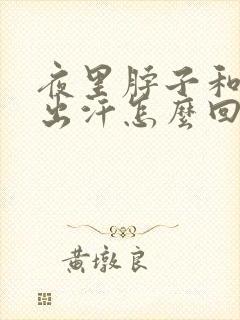 夜里脖子和
出汗怎麼回
黄墩良